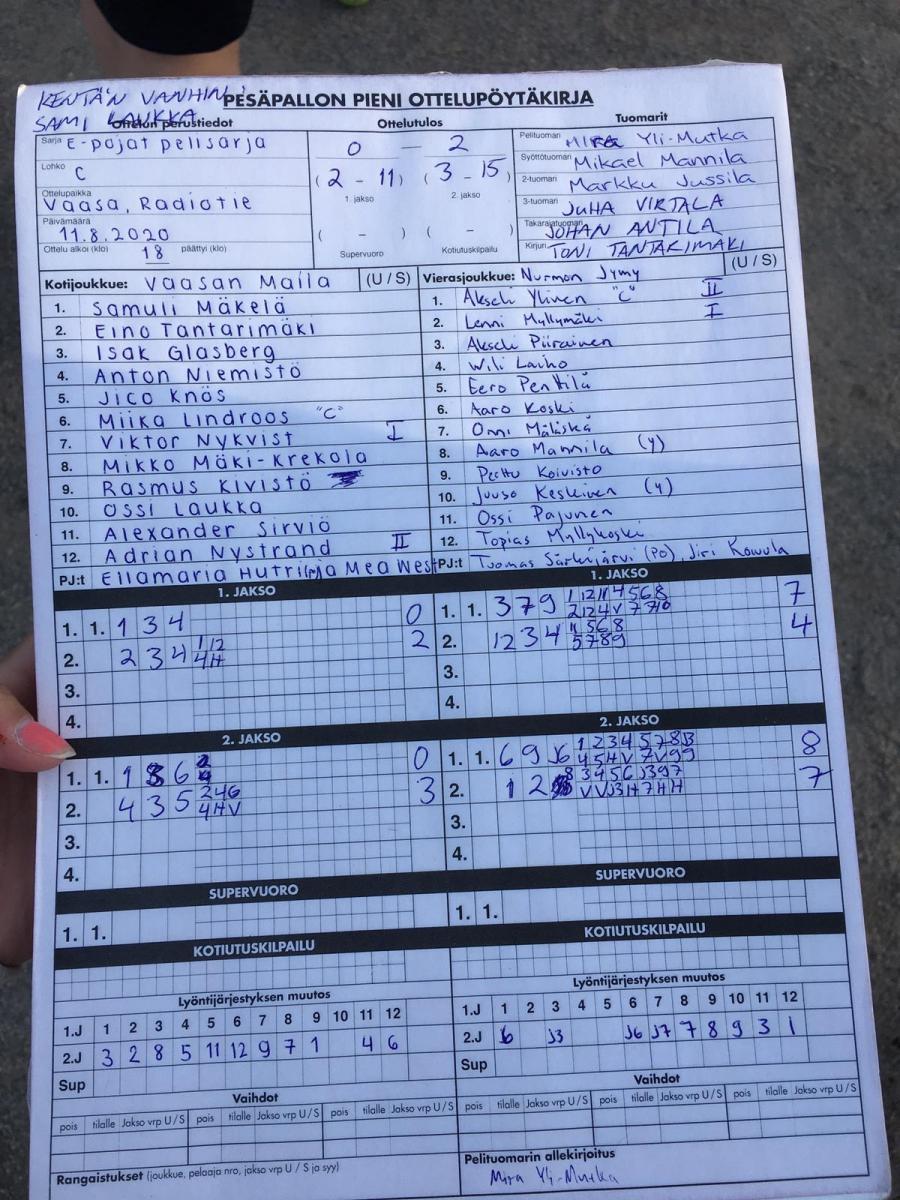 KENTÄN VANHIN:
SAMI LAUKKA
PESÄPALLON PIENI OTTELUPÖYTÄKIRJA
Ottelun perustiedot
Ottelutulos
Tuomarit
Sarja E-pojat pelisarja
0 — 2
Pelituomari MIRA Yli-Mutka
Lohko C
(2 - 11) (3 - 15)
Syöttötuomari Mikael Mannila
1. jakso 2. jakso
2-tuomari Markku Jussila
Ottelupaikka Vaasa, Radiotie
3-tuomari JUHA VIRTALA
Päivämäärä 11.8.2020
( - ) ( - )
Takarajatuomari JOHAN ANTILA
Ottelu alkoi (klo) 18 päättyi (klo)
Supervuoro Kotiutuskilpailu
Kirjuri TONI TANTARIMÄKI
Kotijoukkue: Vaasan Maila (U / S)
1. Samuli Mäkelä
2. Eino Tantarimäki
3. Isak Glasberg
4. Anton Niemistö
5. Jico Knös
6. Miika Lindroos "C"
7. Viktor Nykvist I
8. Mikko Mäki-Krekola
9. Rasmus Kivistö
10. Ossi Laukka
11. Alexander Sirviö
12. Adrian Nystrand II
PJ:t Ellamaria Hutri Mea West
Vierasjoukkue: Nurmon Jymy (U / S)
1. Akseli Ylinen "C" II
2. Lenni Myllymäki I
3. Akseli Piirainen
4. Wili Laiho
5. Eero Penttilä
6. Aaro Koski
7. Onni Mäläskä
8. Aaro Mannila (y)
9. Perttu Koivisto
10. Juuso Keskinen (y)
11. Ossi Pajunen
12. Topias Myllykoski
PJ:t Tuomas Särkijärvi (PO), Jiri
1. JAKSO
1. 1. 1 3 4 0
2. 2 3 4 2
3.
4.
1. JAKSO
1. 1. 3 7 9 7
2. 1 2 3 4 4
3.
4.
2. JAKSO
1. 1. 1 6 0
2. 4 3 5 246 4HV 3
3.
4.
2. JAKSO
1. 1. 6 9 J6 8
2. 1 2 7
3.
4.
SUPERVUORO
1. 1.
SUPERVUORO
1. 1.
KOTIUTUSKILPAILU
KOTIUTUSKILPAILU
Lyöntijärjestyksen muutos
1.J 1 2 3 4 5 6 7 8 9 10 11 12
2.J 3 2 8 5 11 12 9 7 1 4 6
Sup
Lyöntijärjestyksen muutos
1.J 1 2 3 4 5 6 7 8 9 10 11 12
2.J 6 J3 J6 J7 7 8 9 3 1
Sup
Vaihdot
pois tilalle Jakso vrp U / S pois tilalle Jakso vrp U / S pois tilalle Jakso vrp U / S
Vaihdot
pois tilalle Jakso vrp U / S pois tilalle Jakso vrp U / S pois tilalle Jakso vrp U / S
Rangaistukset (joukkue, pelaaja nro, jakso vrp U / S ja syy)
Pelituomarin allekirjoitus
Mira Yli-Mutka